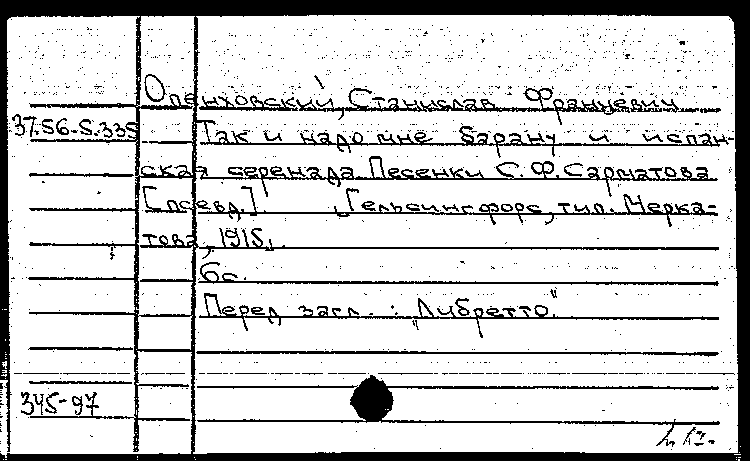 Опенховский, Станислав Францевич
37.56-5.335 Так и надо мне барану и испан-
ская серенада. Песенки С.Ф. Сарматова
[псевд.]. Гельсингфорс, тип. Мерка-
това, 1915.
6с.
Перед загл.: "Либретто."
345-97